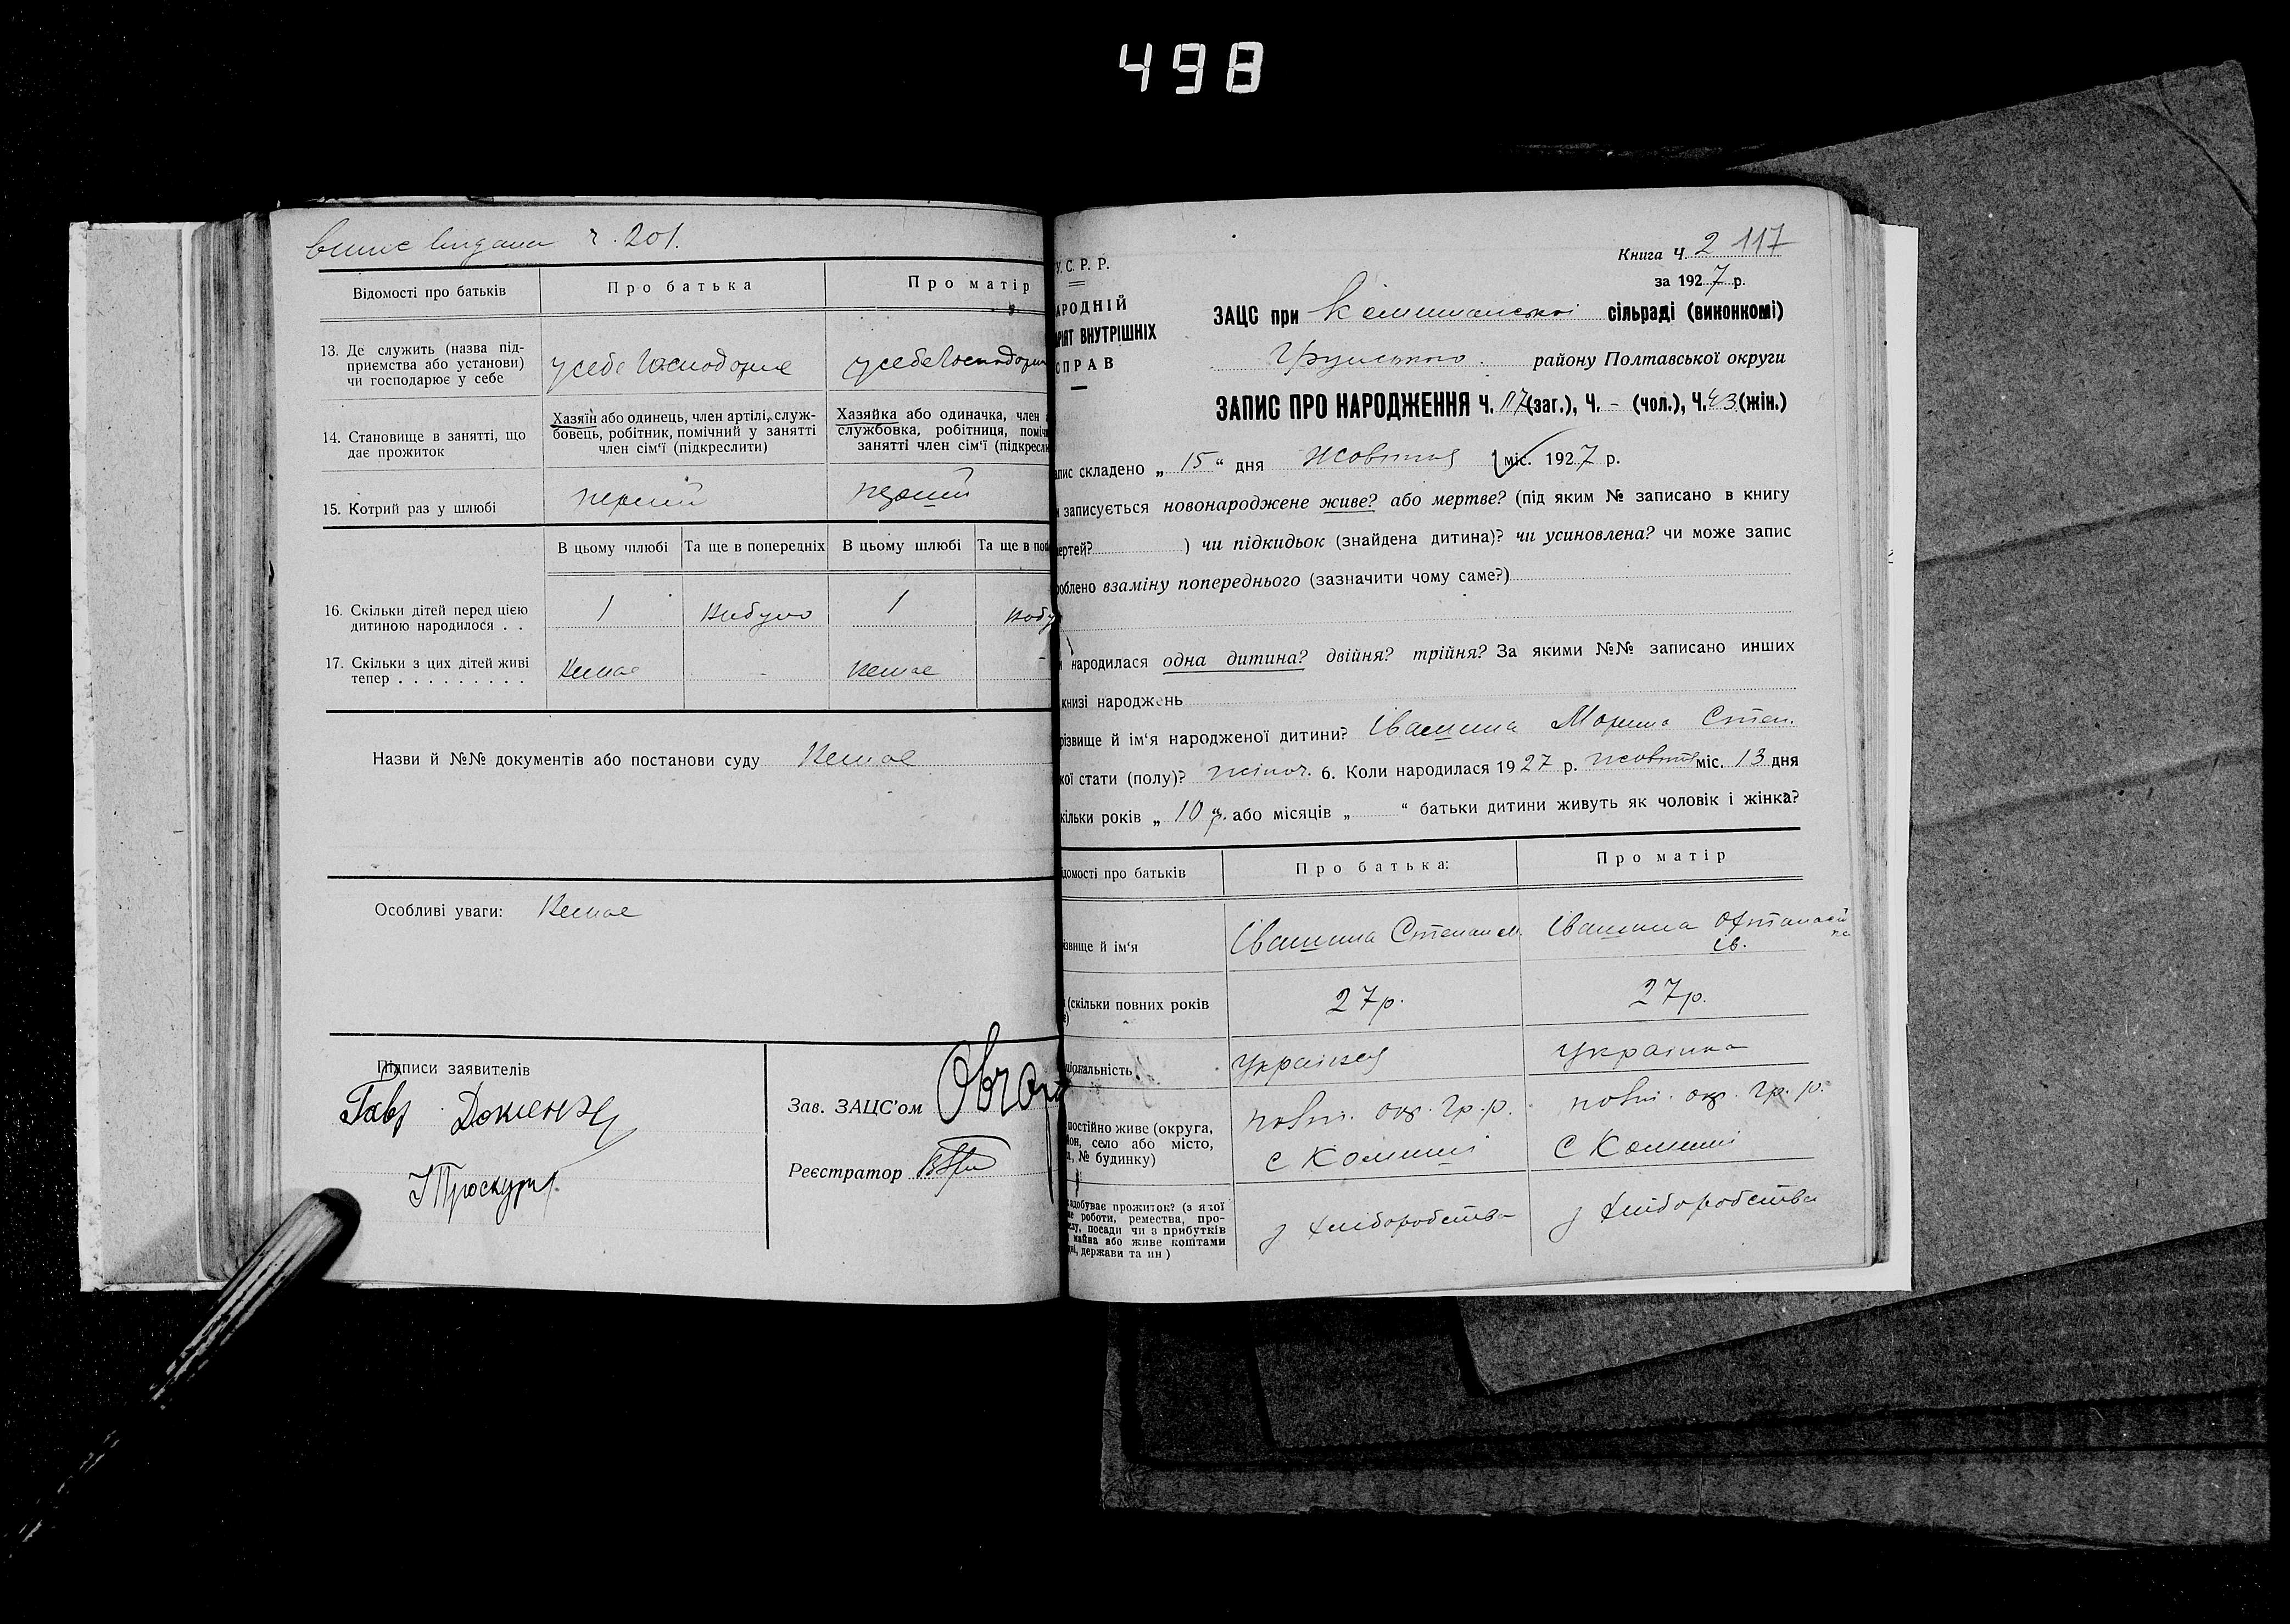 498
ч. 201.
Відомості про батьків
Про батька
Про матір
13. Де служить (назва під-
приємства або установи)
чи господарює у себе
у себе
у себе
14. Становище в занятті, що
дає прожиток
Хазяїн або одинець, член артілі, служ-
бовець, робітник, помічний у занятті
член сім'ї (підкреслити)
Хазяйка або одиначка, член
службовка, робітниця, поміч
занятті член сім'ї (підкресли
15. Котрий раз у шлюбі
перший
перший
В цьому шлюбі
Та ще в попередніх
В цьому шлюбі
Та ще в поп
16. Скільки дітей перед цією
дитиною народилося . .
1
Небуло
1
17. Скільки з цих дітей живі
тепер . . . . . . . . .
Немає
-
немає
Назви й №№ документів або постанови суду Немає
Особливі уваги: Немає
Підписи заявителів
Зав. ЗАЦС'ом
Реєстратор
Книга Ч. 2 117
за 1927 р.
У. С. Р. Р.
АРОДНІЙ
РІЯТ ВНУТРІШНІХ
СПРАВ
ЗАЦС при сільраді (виконкомі)
Грунського району Полтавської округи
ЗАПИС ПРО НАРОДЖЕННЯ Ч. 117 (заг.), Ч. - (чол.), Ч. 43 (жін.)
апис складено „ 15 “ дня Жовтня міс. 1927 р.
и записується новонароджене живе? або мертве? (під яким № записано в книгу
ертей? ) чи підкидьок (знайдена дитина)? чи усиновлена? чи може запис
облено взаміну попереднього (зазначити чому саме?)
и народилася одна дитина? двійня? трійня? За якими №№ записано инших
книзі народжень
різвище й ім'я народженої дитини? Івашина Марина Степ.
кої стати (полу)? жіноч. 6. Коли народилася 1927 р. жовтня міс. 13 дня
кільки років „ 10 р. або місяців „ “ батьки дитини живуть як чоловік і жінка?
домості про батьків
Про батька:
Про матір
ізвище й ім'я
Івашина Степан
Івашина
Ів.
(скільки повних років
27 р.
27 р.
ціональність
Українець
Українка
постійно живе (округа,
йон, село або місто,
, № будинку)
Полт. окр. Гр. р.
с Комиші
Полт. окр. Гр. р.
с Комиші
здобуває прожиток? (з якої
ме роботи, ремества, про-
слу, посади чи з прибутків
майна або живе коштами
ні, держави та ин)
з хліборобства
з хліборобства